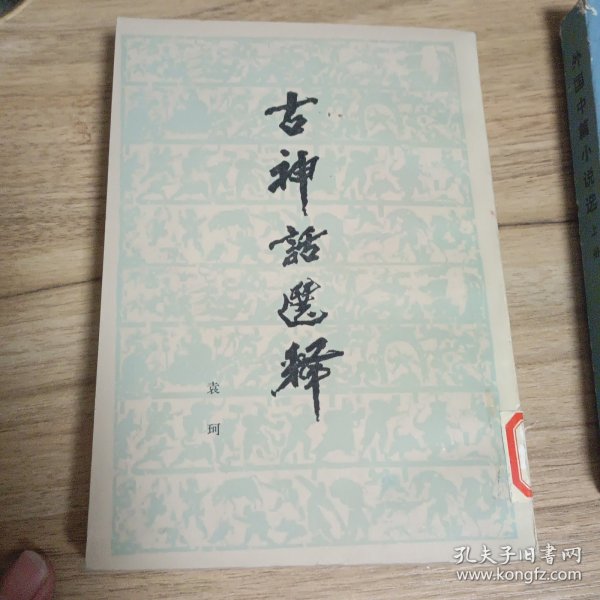 古神話選釋
袁珂
外国中篇小说选
上册
孔夫子旧书网
www.kongfz.com